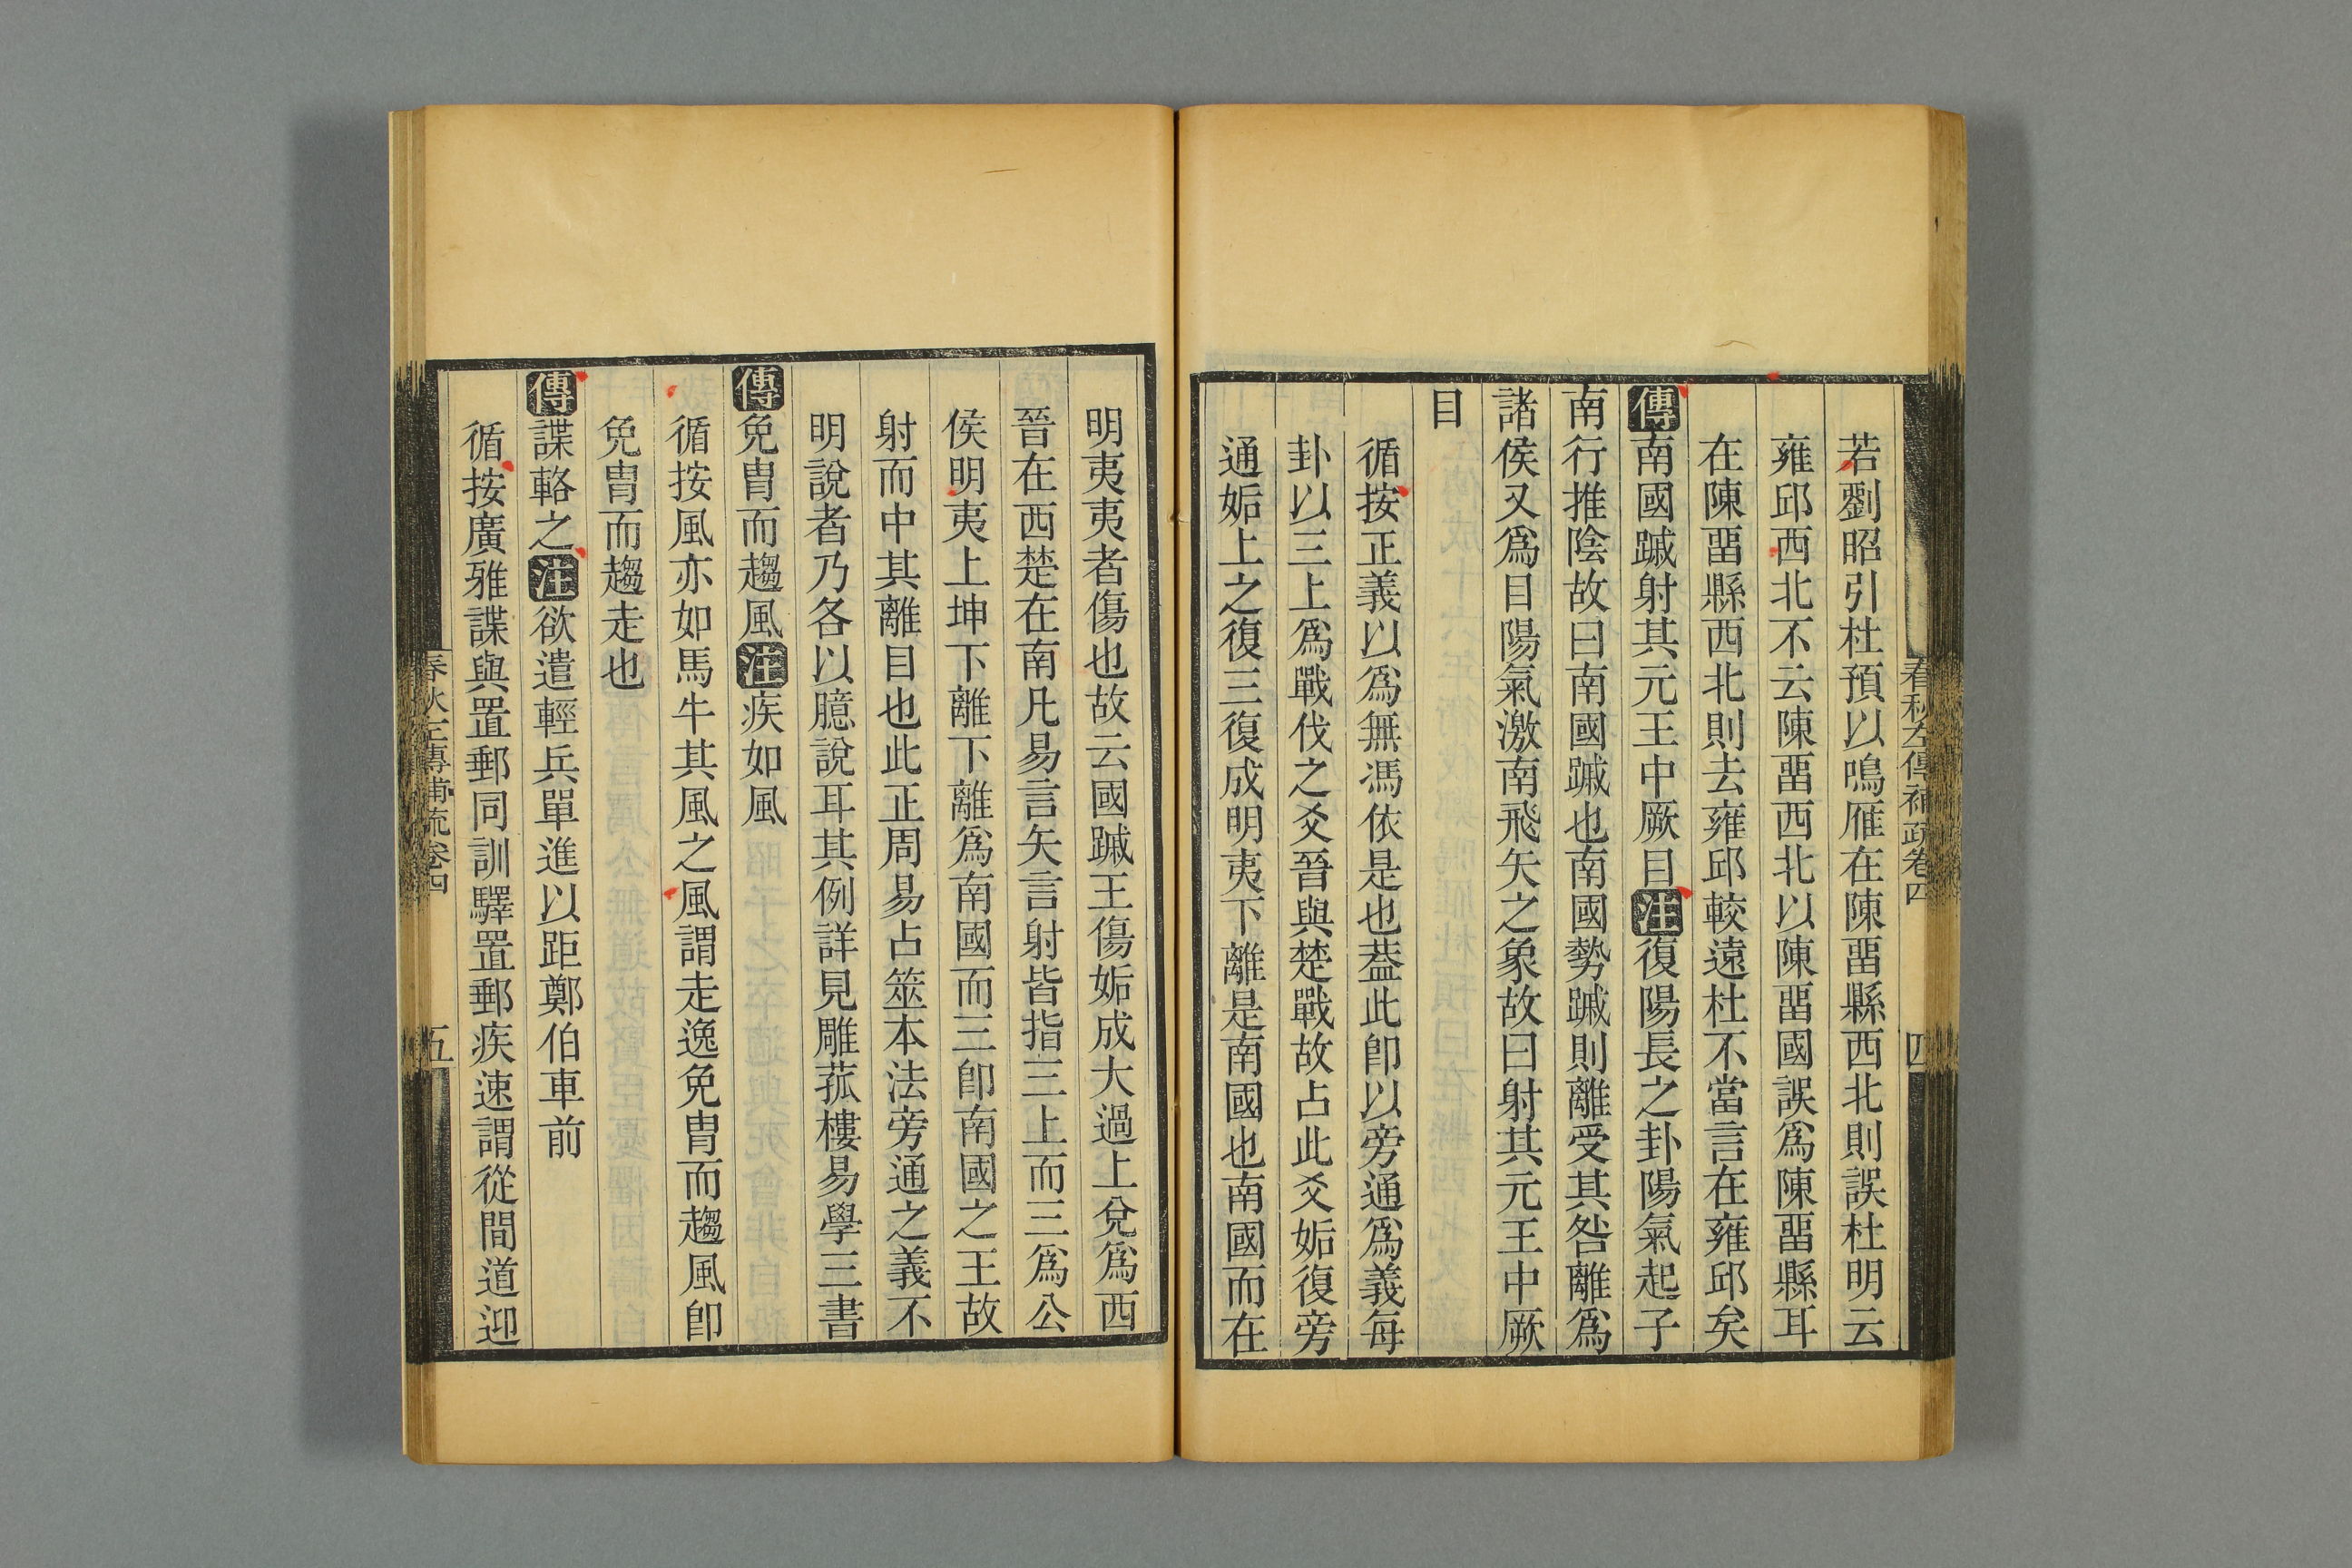 春秋左傳補疏卷四
四
若劉昭引杜預以鳴雁在陳畱縣西北則誤杜明云
雍邱西北不云陳畱西北以陳畱國誤爲陳畱縣耳
在陳畱縣西北則去雍邱較遠杜不當言在雍邱矣
傳南國䠞射其元王中厥目注復陽長之卦陽氣起子
南行推陰故曰南國䠞也南國勢䠞則離受其咎離爲
諸侯又爲目陽氣激南飛矢之象故曰射其元王中厥
目
循按正義以爲無馮依是也葢此卽以旁通爲義每
卦以三上爲戰伐之爻晉與楚戰故占此爻姤復旁
通姤上之復三復成明夷下離是南國也南國而在
明夷夷者傷也故云國䠞王傷姤成大過上兌爲西
晉在西楚在南凡易言矢言射皆指三上而三爲公
侯明夷上坤下離下離爲南國而三卽南國之王故
射而中其離目也此正周易占筮本法旁通之義不
明說者乃各以臆說耳其例詳見雕菰樓易學三書
傳免冑而趨風注疾如風
循按風亦如馬牛其風之風謂走逸免冑而趨風卽
免冑而趨走也
傳諜輅之注欲遣輕兵單進以距鄭伯車前
循按廣雅諜與置郵同訓驛置郵疾速謂從間道迎
春秋左傳補疏卷四
五